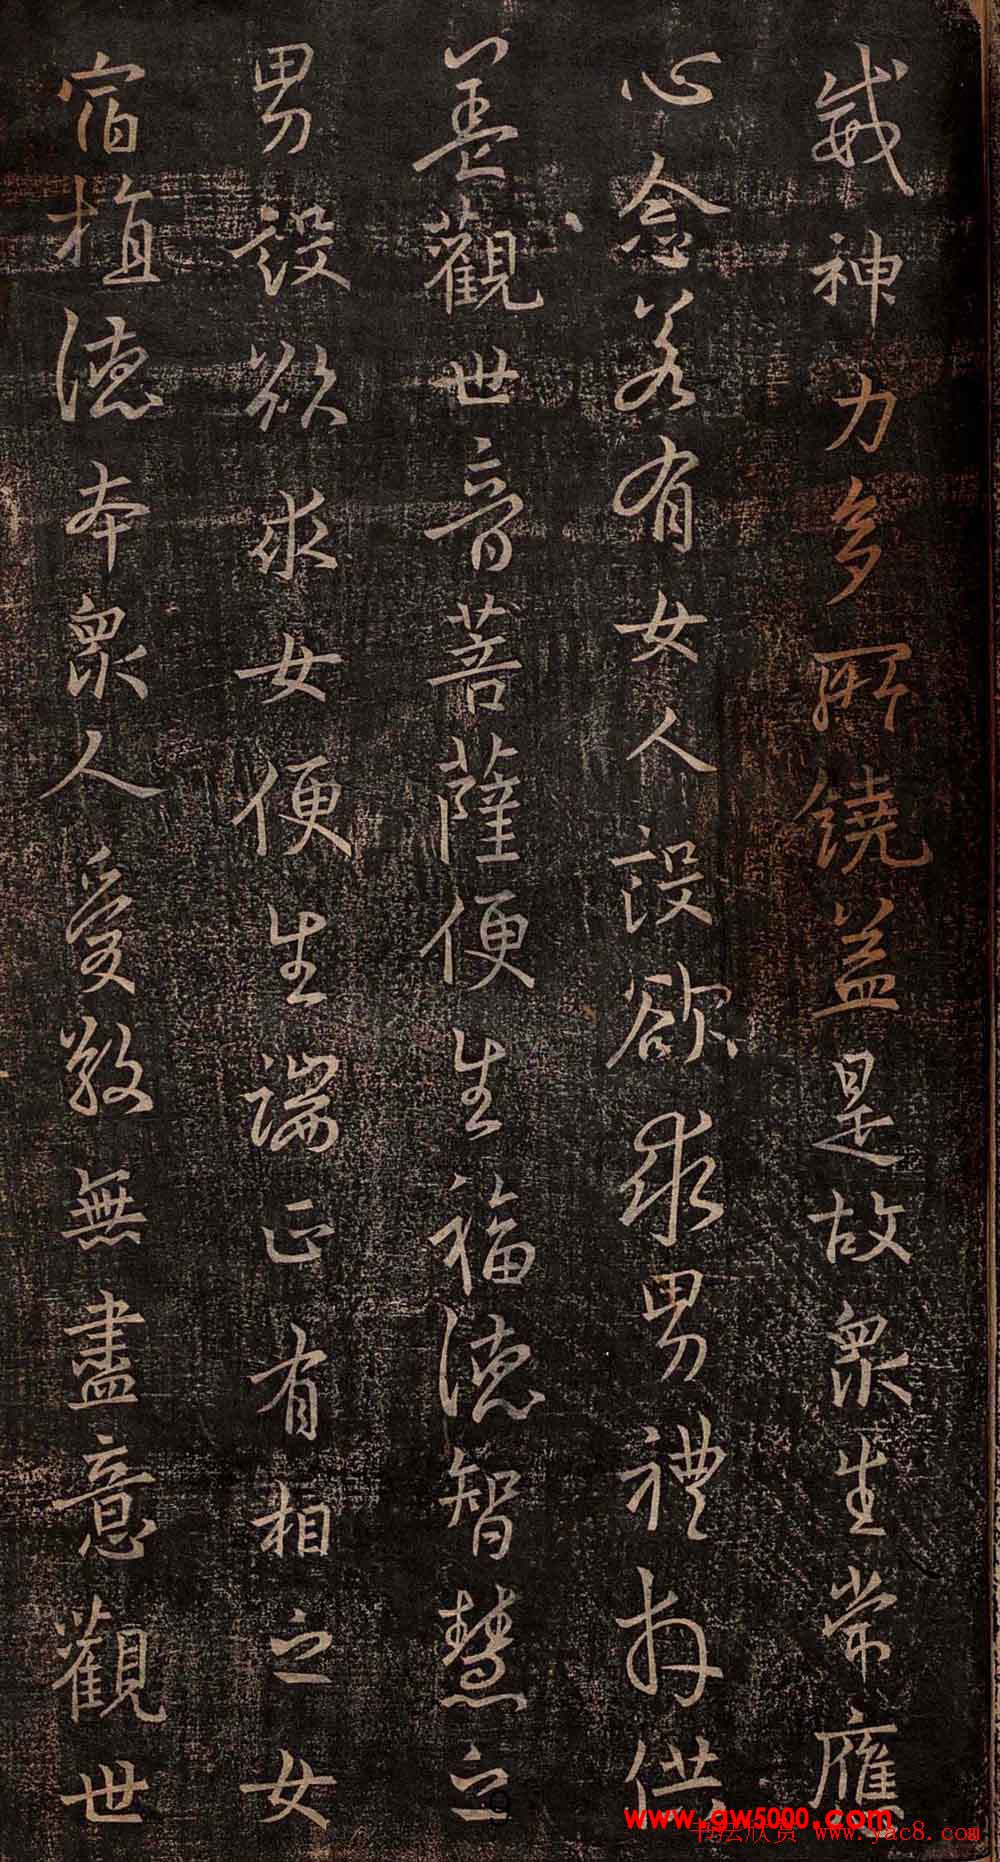 威神力多所饒益是故衆生常應
心念若有女人設欲求男禮拜供
養觀世音菩薩便生福德智慧之
男設欲求女便生端正有相之女
宿植德本衆人愛敬無盡意觀世
www.gw5000.com
书法欣赏 www.yac8.com